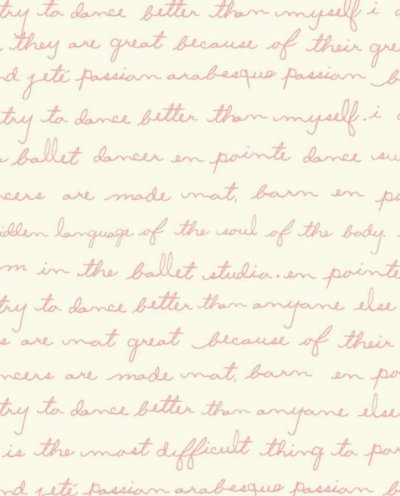 try to dance better than myself i
they are great because of their gre
nd jeté passion arabesque passion b
try to dance better than myself. i
a ballet dancer en pointe dance su
ncers are made not, born en po
idden language of the soul of the body
m in the ballet studio. en pointe
try to dance better than anyone else
s are not great because of their
ncers are made not, born en po
try to dance better than anyone else
is the most difficult thing to par
nd jeté passion arabesque passion b